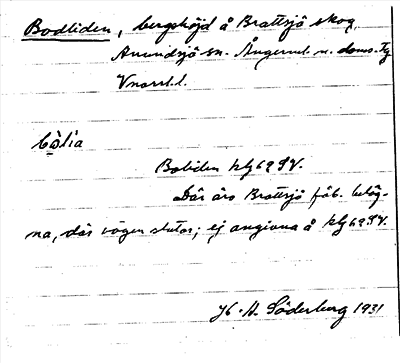 Bodliden, bergshöjd å Brattsjö skog,
Anundsjö sn. Ångerml. n. doms. Tg
Vnorrl. l.
bòlia
Boliden kbg 62 SV.
Där äro Brattsjö fäb. beläg-
na, där vägen slutar; ej angivna å kbg 62 SV.
H. Söderberg 1931